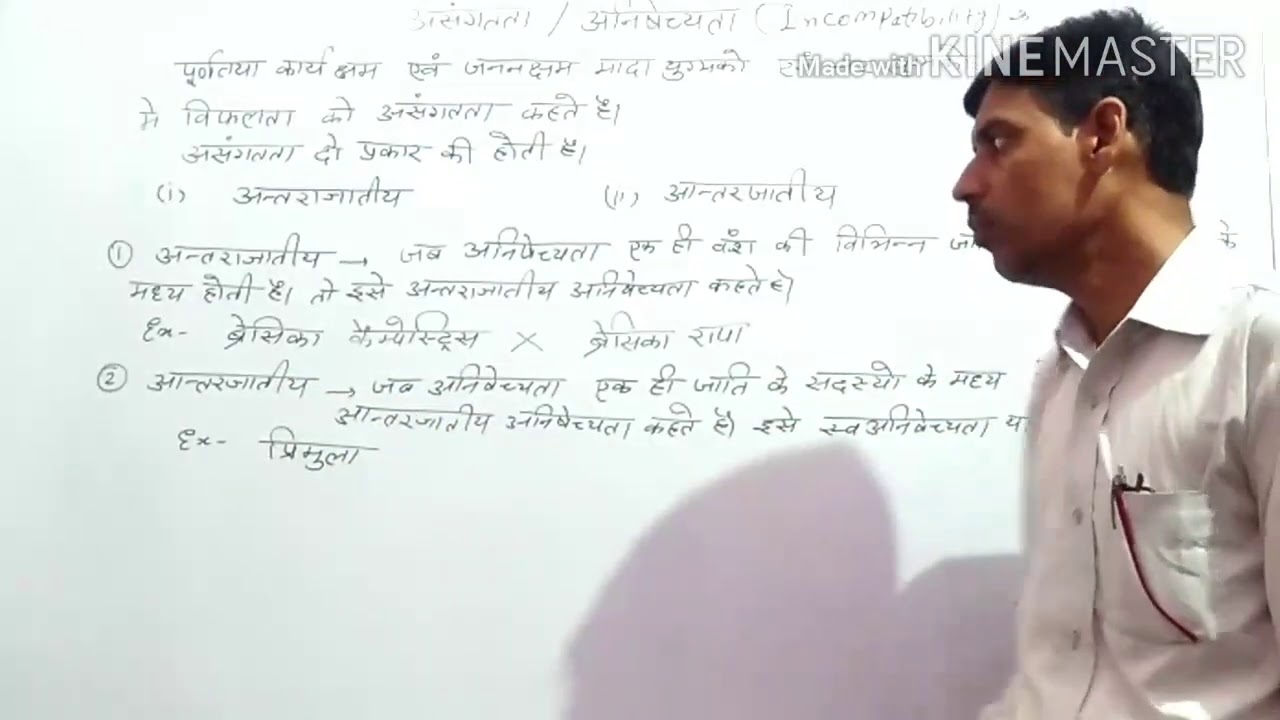 असंगतता / अनिषेच्यता (Incompatibility) →
Made with KINEMASTER
पूर्णतया कार्यक्षम एवं जननक्षम मादा युग्मको
मे विफलता को असंगतता कहते है।
असंगतता दो प्रकार की होती है।
(i) अन्तराजातीय (ii) आन्तरजातीय
① अन्तराजातीय → जब अनिषेच्यता एक ही वंश की विभिन्न के
मध्य होती है। तो इसे अन्तराजातीय अनिषेच्यता कहते है।
Ex- ब्रेसिका कैम्पेस्ट्रिस × ब्रेसिका रापा
② आन्तरजातीय → जब अनिषेच्यता एक ही जाति के सदस्यो के मध्य
आन्तरजातीय अनिषेच्यता कहते है। इसे स्वअनिषेच्यता या
Ex- प्रिमुला